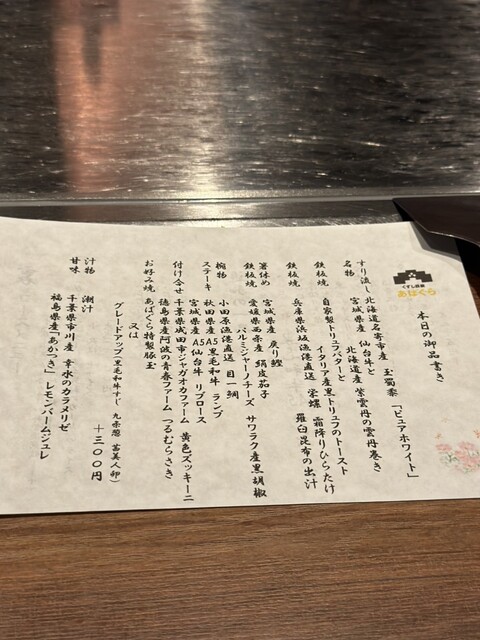 くずし鉄板
あばぐら
本日の御品書き
すり流し 北海道名寄市産 玉蜀黍 「ピュアホワイト」
名物 宮城県産 仙台牛と
北海道産 紫雲丹の雲丹巻き
鉄板焼 自家製トリュフバターと
イタリア産黒トリュフのトースト
鉄板焼 兵庫県浜坂漁港直送 栄螺 霜降りひらたけ
羅臼昆布の出汁
箸休め 宮城県産 戻り鰹
鉄板焼 愛媛県西条産 絹皮茄子
パルミジャーノチーズ サワラク産黒胡椒
椀物 小田原漁港直送 目一鯛
ステーキ 秋田県産A5黒毛和牛 ランプ
宮城県産 A5仙台牛 リブロース
付け合せ 千葉県成田市ジャガオカファーム 黄色ズッキーニ
徳島県産阿波の青春ファーム つるむらさき
お好み焼 あばぐら特製豚玉
又は
グレードアップ(黒毛和牛すじ 九条葱 富美人卵)
+三〇〇円
汁物 潮汁
甘味 千葉県市川産 幸水のカラメリゼ
福島県産「あかつき」 レモンバームジュレ